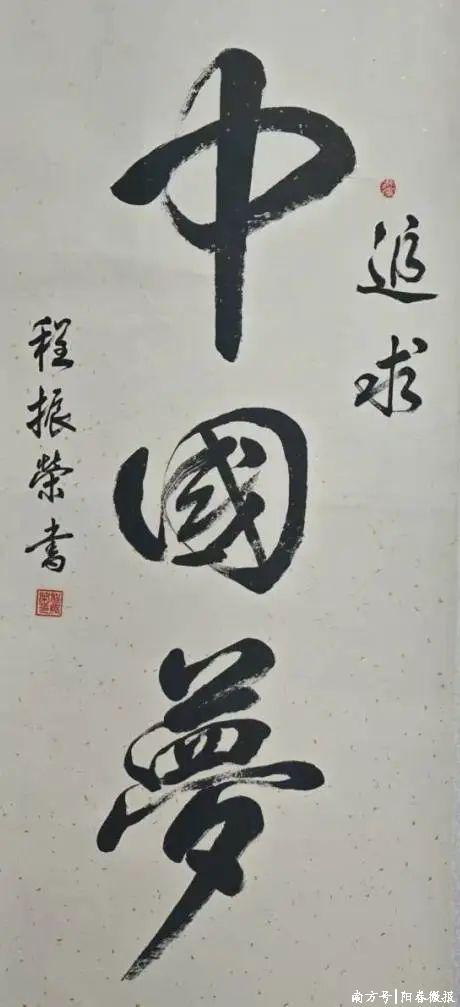 追求
中國夢
程振榮書
南方号|阳春微报